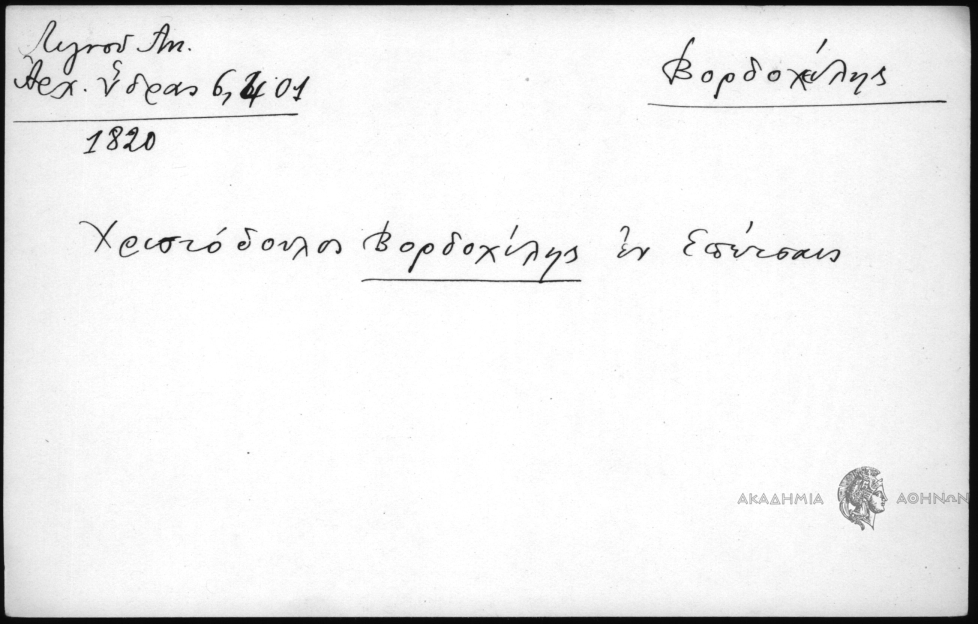 Λιγνοῦ Ἀν.
Ἀρχ. Ὕδρας 6, 401
1820
Βορδοχύλης
Χριστόδουλος Βορδοχύλης ἐν Σπέτσαις
ΑΚΑΔΗΜΙΑ ΑΘΗΝΩΝ